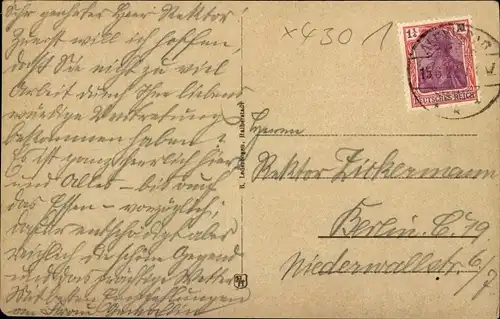 Sehr geehrter Herr Rektor!
Zuerst will ich hoffen,
daß Sie nicht zu viel
Arbeit durch Ihre liebens
würdige Vertretung
bekommen haben?
Es ist ganz herrlich hier
und Alles – bis auf
das Essen – vorzüglich;
dafür entschädigt aber
reichlich die schöne Gegend
und das prächtige Wetter.
Mit besten Empfehlungen
x430 1
1¼ M
DEUTSCHES REICH
R. Lederbogen, Halberstadt
Herrn
Rektor Zickermann
Berlin. C. 19
Niederwallstr. 6/7